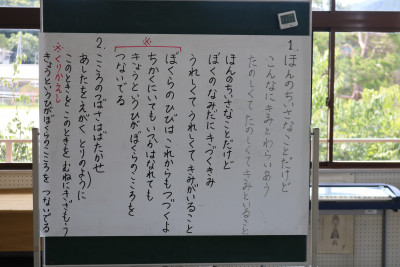 1. ほんのちいさなことだけど
こんなにきみとわらいあう
たのしくて たのしくて きみといること
ほんのちいさなことだけど
ぼくのなみだに きづくきみ
うれしくて うれしくて きみがいること
※
ぼくらのひびは これからもつづくよ
ちかくにいても いつかはなれても
きょうというひがぼくらのこころを
つないでる
2. こころのつばさはばたかせ
あしたをえがく とりのように
このときを このときを むねにきざもう
※くりかえし
きょうというひがぼくらのこころを つないでる